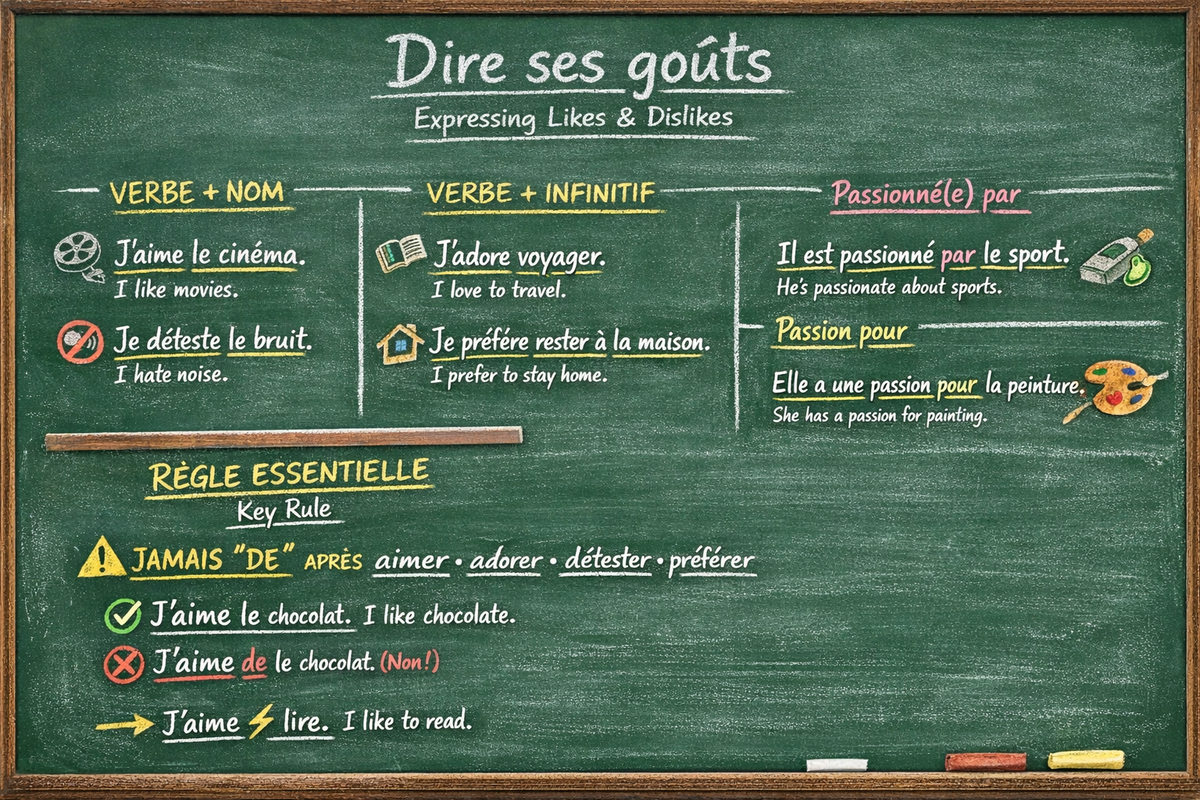 Dire ses goúts
Expressing Likes & Dislikes
VERBE + NOM
J'aime le cinéma.
I like movies.
Je déteste le bruit.
I hate noise.
VERBE + INFINITIF
J'adore voyager.
I love to travel.
Je préfére rester à la maison.
I prefer to stay home.
Passionné(e) par
Il est passionné par le sport.
He's passionate about sports.
Passion pour
Elle a une passion pour la peinture.
She has a passion for painting.
RÈGLE ESSENTIELLE
Key Rule
JAMAIS "DE" APRÈS aimer • adorer • détester • préférer
J'aime le chocolat. I like chocolate.
J'aime de le chocolat. (Non!)
J'aime lire. I like to read.